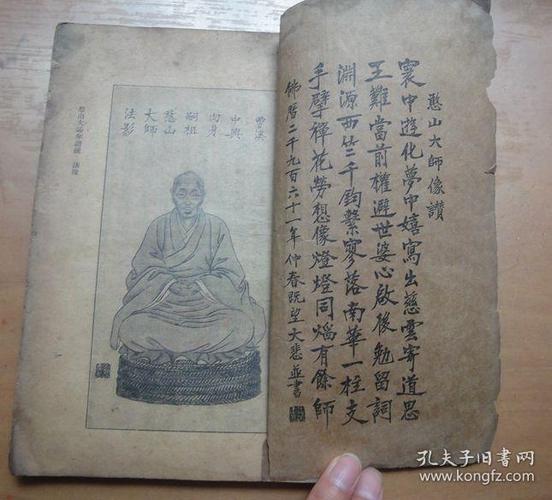 憨山大師像讚
寰中遊化夢中嬉寫出慈雲寄道思
王難當前權避世婆心啟後勉留詞
淵源西竺千鈞繫寥落南華一柱支
手擘禪花勞想像燈燈同燄有餘師
佛曆二千九百六十一年仲春既望大悲並書
曹溪
中興
肉身
嗣祖
憨山
大師
法影
憨山大師年譜疏 法像
孔夫子旧书网
www.kongfz.com